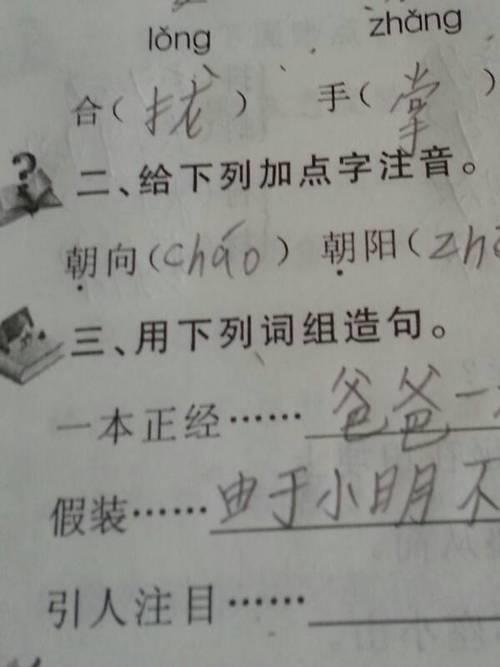 lǒng zhǎng
合(拢) 手(掌)
二、给下列加点字注音。
朝向(cháo) 朝阳(zh
三、用下列词组造句。
一本正经……爸爸一
假装……由于小明不
引人注目……